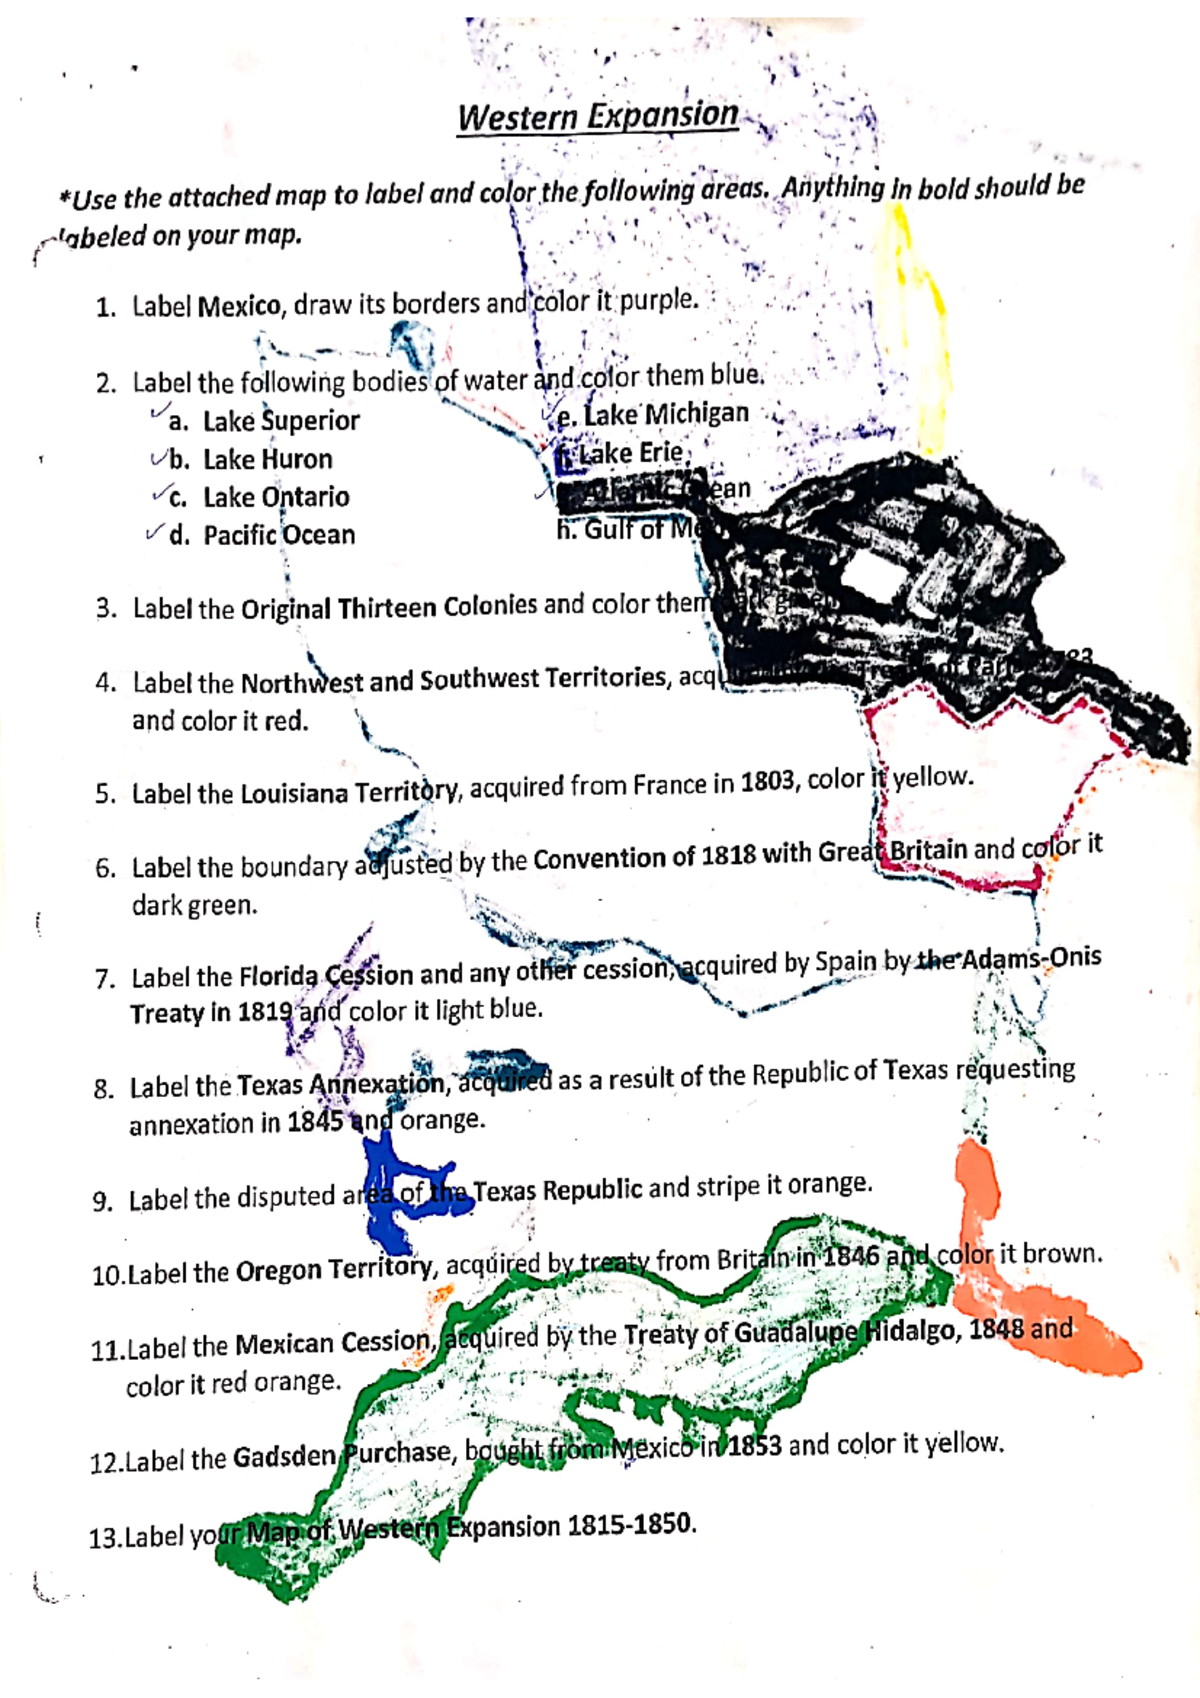 Western Expansion
*Use the attached map to label and color the following areas. Anything in bold should be
labeled on your map.
1. Label Mexico, draw its borders and color it purple.
2. Label the following bodies of water and color them blue.
a. Lake Superior
e. Lake Michigan
b. Lake Huron
f. Lake Erie
c. Lake Ontario
g. Atlantic Ocean
d. Pacific Ocean
h. Gulf of
3. Label the Original Thirteen Colonies and color them dark green
4. Label the Northwest and Southwest Territories, of Paris
and color it red.
5. Label the Louisiana Territory, acquired from France in 1803, color it yellow.
6. Label the boundary adjusted by the Convention of 1818 with Great Britain and color it
dark green.
7. Label the Florida Cession and any other cession, acquired by Spain by the Adams-Onis
Treaty in 1819 and color it light blue.
8. Label the Texas Annexation, acquired as a result of the Republic of Texas requesting
annexation in 1845 and orange.
9. Label the disputed area of the Texas Republic and stripe it orange.
10.Label the Oregon Territory, acquired by treaty from Britain in 1846 and color it brown.
11.Label the Mexican Cession, acquired by the Treaty of Guadalupe Hidalgo, 1848 and
color it red orange.
12.Label the Gadsden Purchase, bought from Mexico in 1853 and color it yellow.
13.Label your Map of Western Expansion 1815-1850.